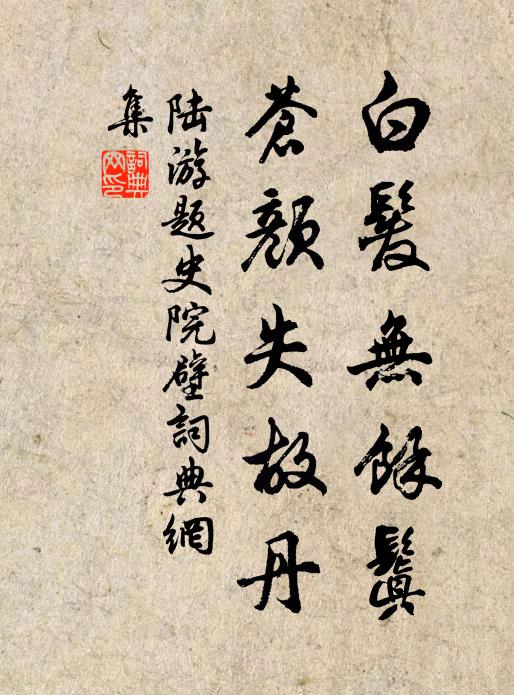 白髮無餘鬒
蒼顏失故丹
陸游題史院壁詞典網
集
詞典
网印